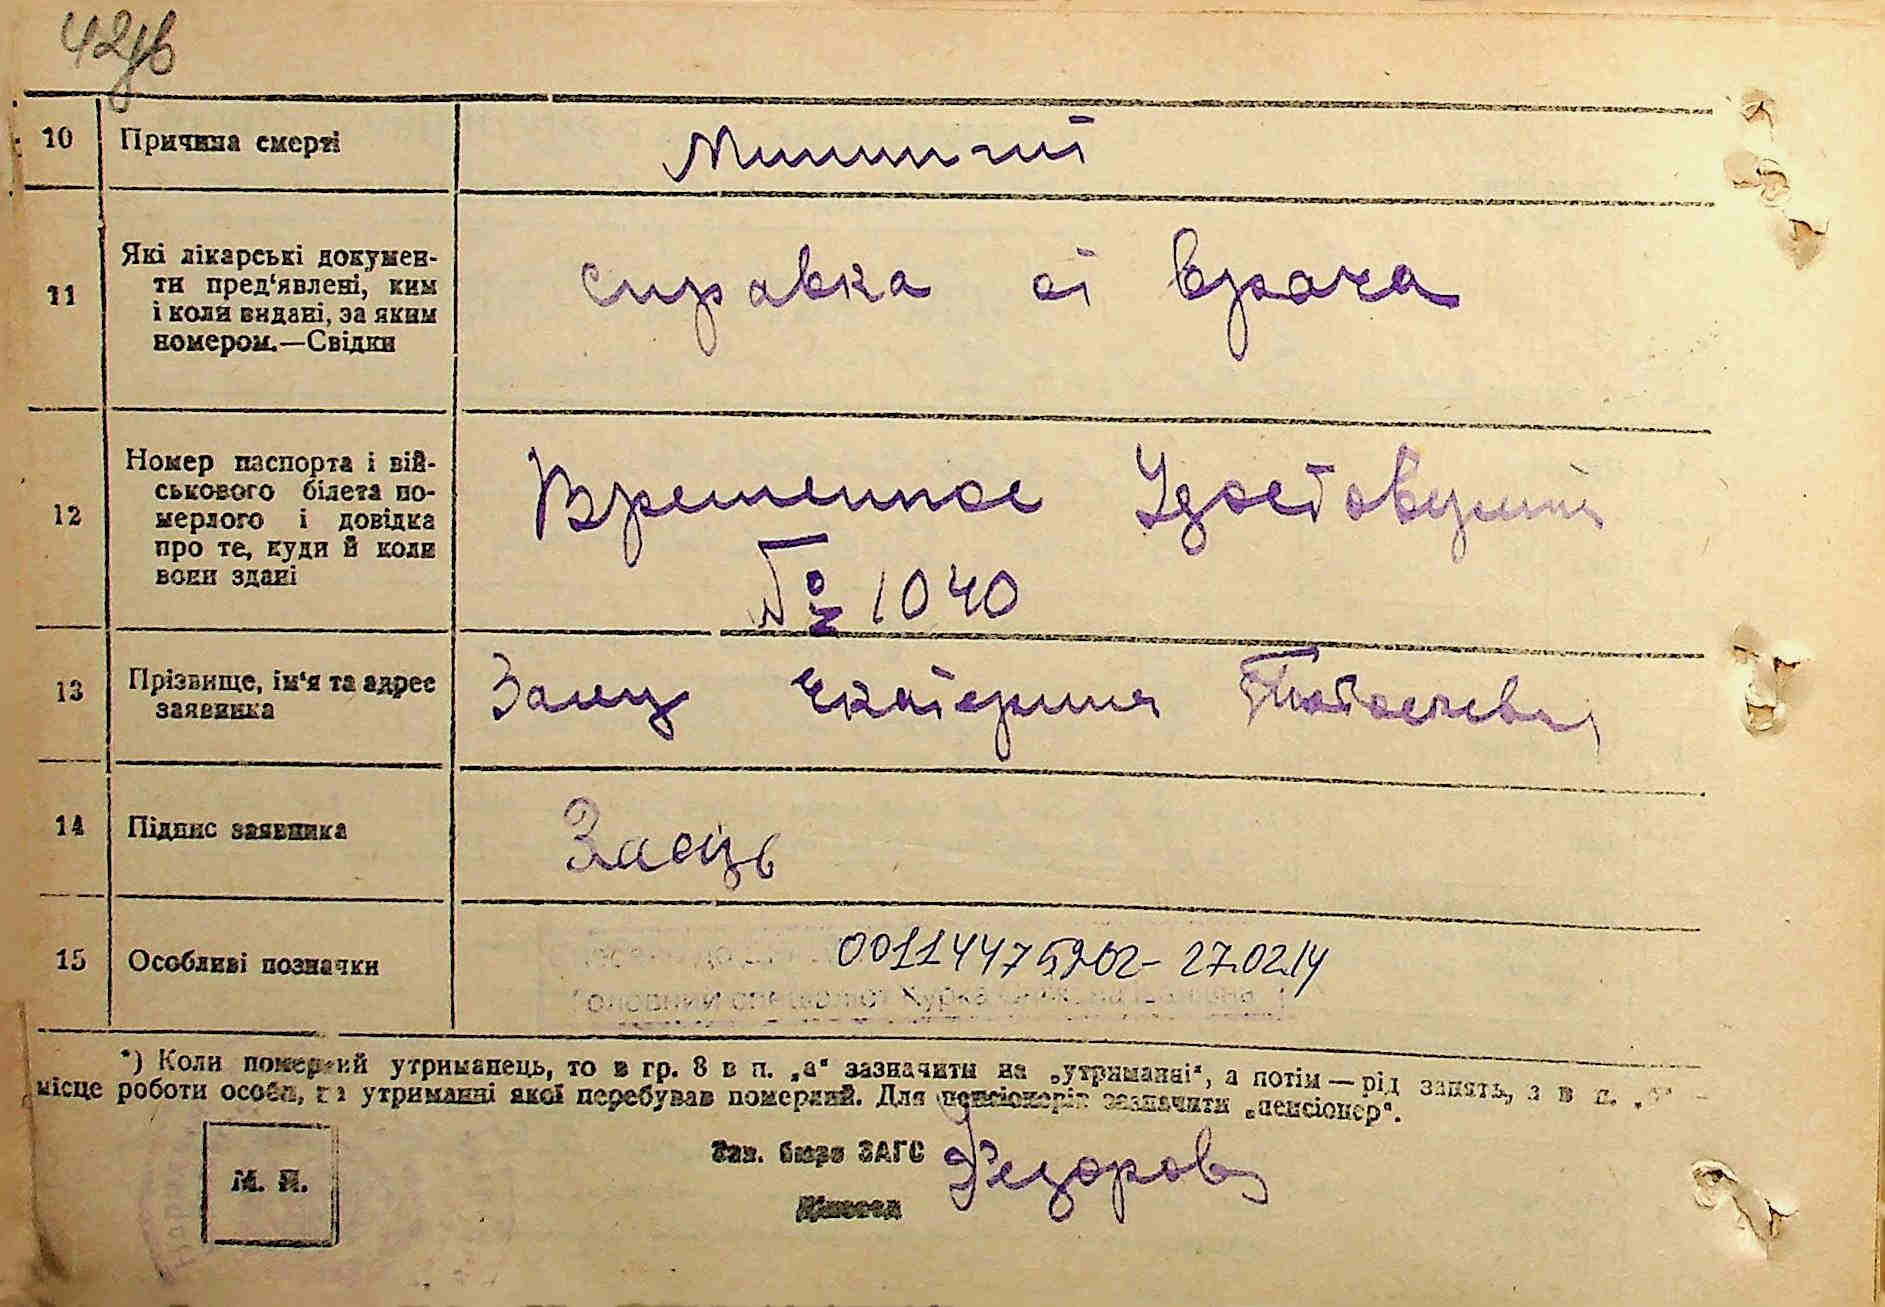 42зв
10 Причина смерті Минингит
11 Які лікарські докумен-
ти пред'явлені, ким
і коли видані, за яким
номером.—Свідки
справка от врача
12 Номер паспорта і вій-
ськового білета по-
мерлого і довідка
про те, куди й коли
вони здані
Временное
№ 1040
13 Прізвище, ім'я та адрес
заявника
Заец Екатерина
14 Підпис заявника Заєць
15 Особливі позначки 00114475202- 27.02.14
Головний спеціаліст
*) Коли померлий утриманець, то в гр. 8 в п. „а“ зазначити на „утриманні“, а потім — рід занять, а в п. „б“ —
місце роботи особи, на утриманні якої перебував померлий. Для пенсіонерів зазначити „пенсіонер“.
Зав. бюро ЗАГС Федорова
М. П.
Діловод